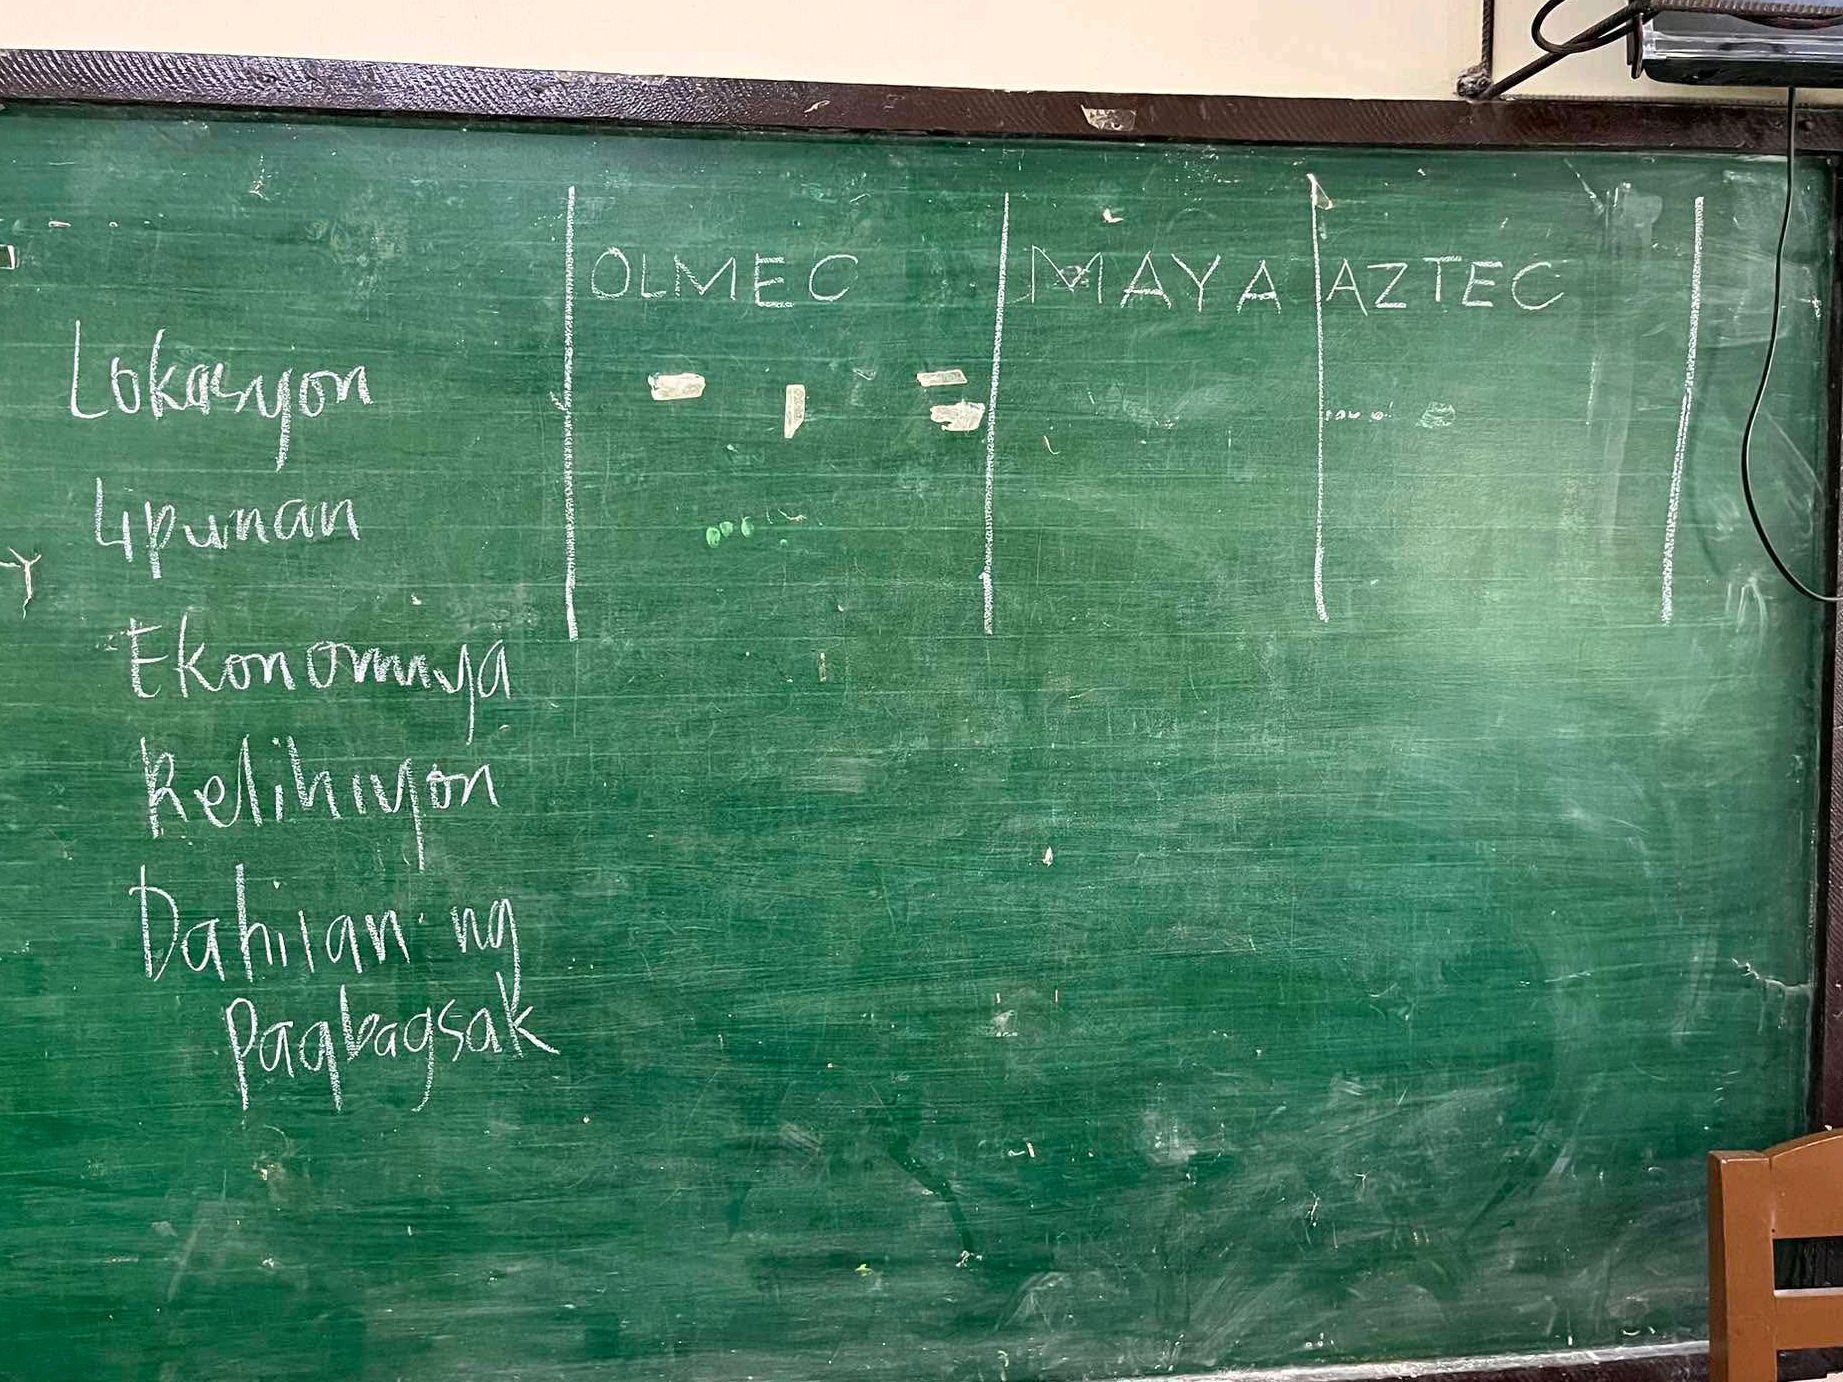 OLMEC MAYA AZTEC
Lokasyon
Lipunan
Ekonomiya
Relihiyon
Dahilan ng
Pagbagsak